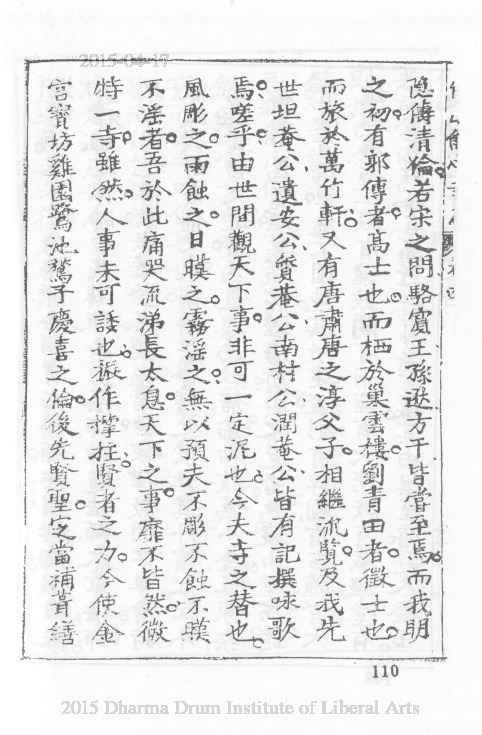 2015-04-17
隐傳清倫若宋之問駱賓王孫逖方干皆嘗至焉而我明
之初有郭傳者高士也而栖於巢雲樓劉青田者徵士也
而旅於萬竹軒又有唐肅唐之淳父子相繼流覽及我先
世坦菴公遺安公質菴公南村公潤菴公皆有記撰咏歌
焉嗟乎由世間觀天下事非可一定泥也今夫寺之替也
風彫之雨蝕之日暵之霧淫之無以預夫不彫不蝕不暵
不淫者吾於此痛哭流涕長太息天下之事靡不皆然微
特一寺雖然人事未可諉也振作撐拄賢者之力今使金
宮寳坊雞園鷺池鶖子慶喜之倫後先賢聖定當補葺繕
110
2015 Dharma Drum Institute of Liberal Arts